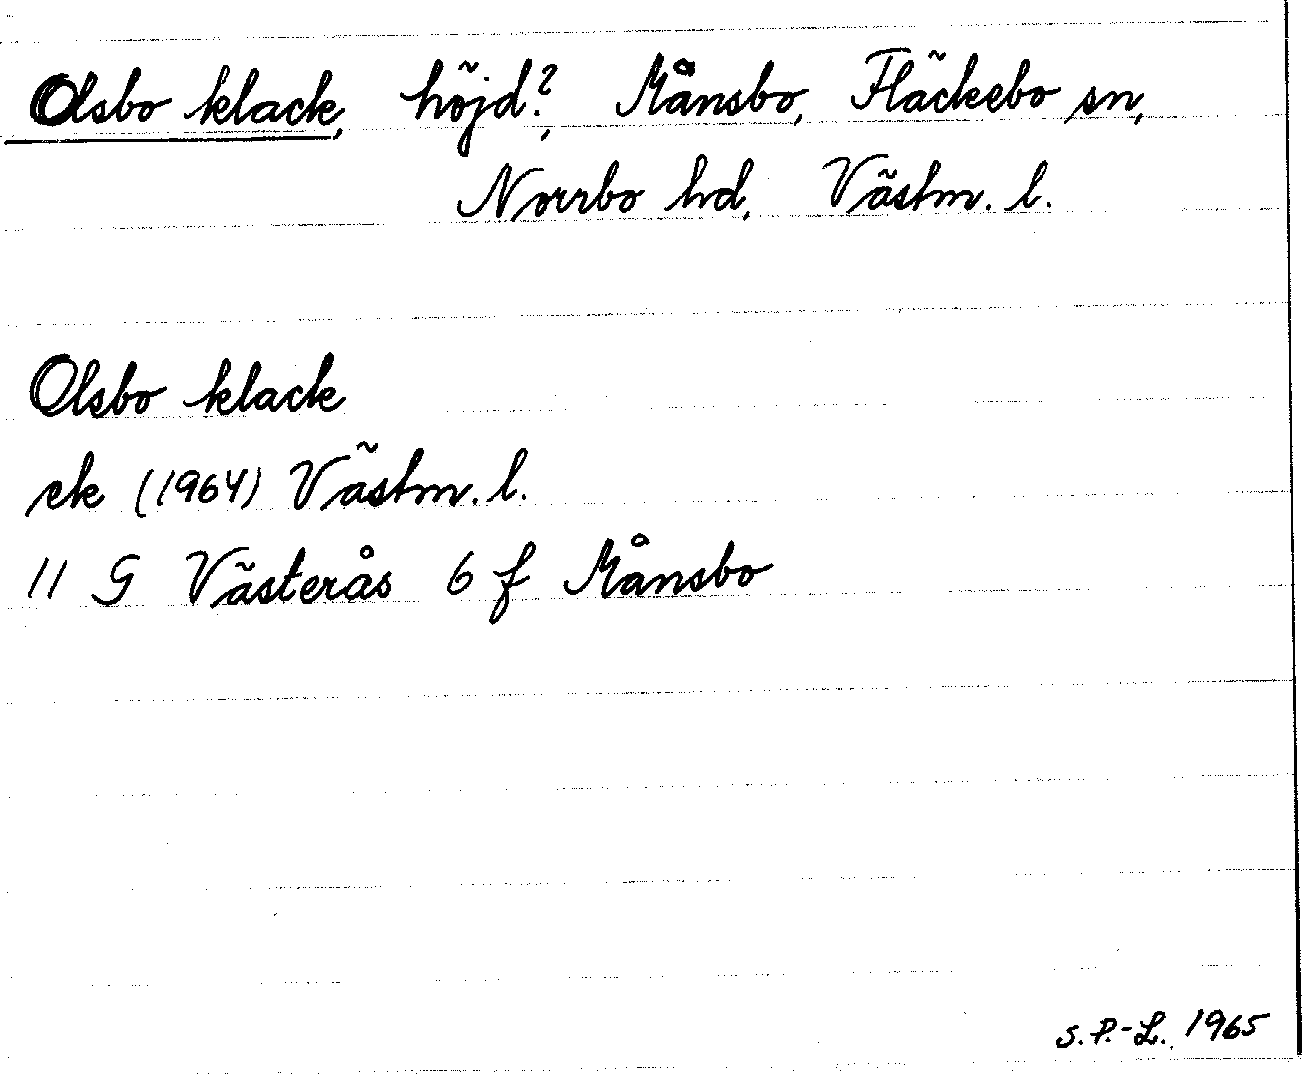 Olsbo klack, höjd?, Månsbo, Fläckebo sn,
Norrbo hd, Västm. l.
Olsbo klack
ek (1964) Västm. l.
11 G Västerås 6 f Månsbo
S. P.-L. 1965